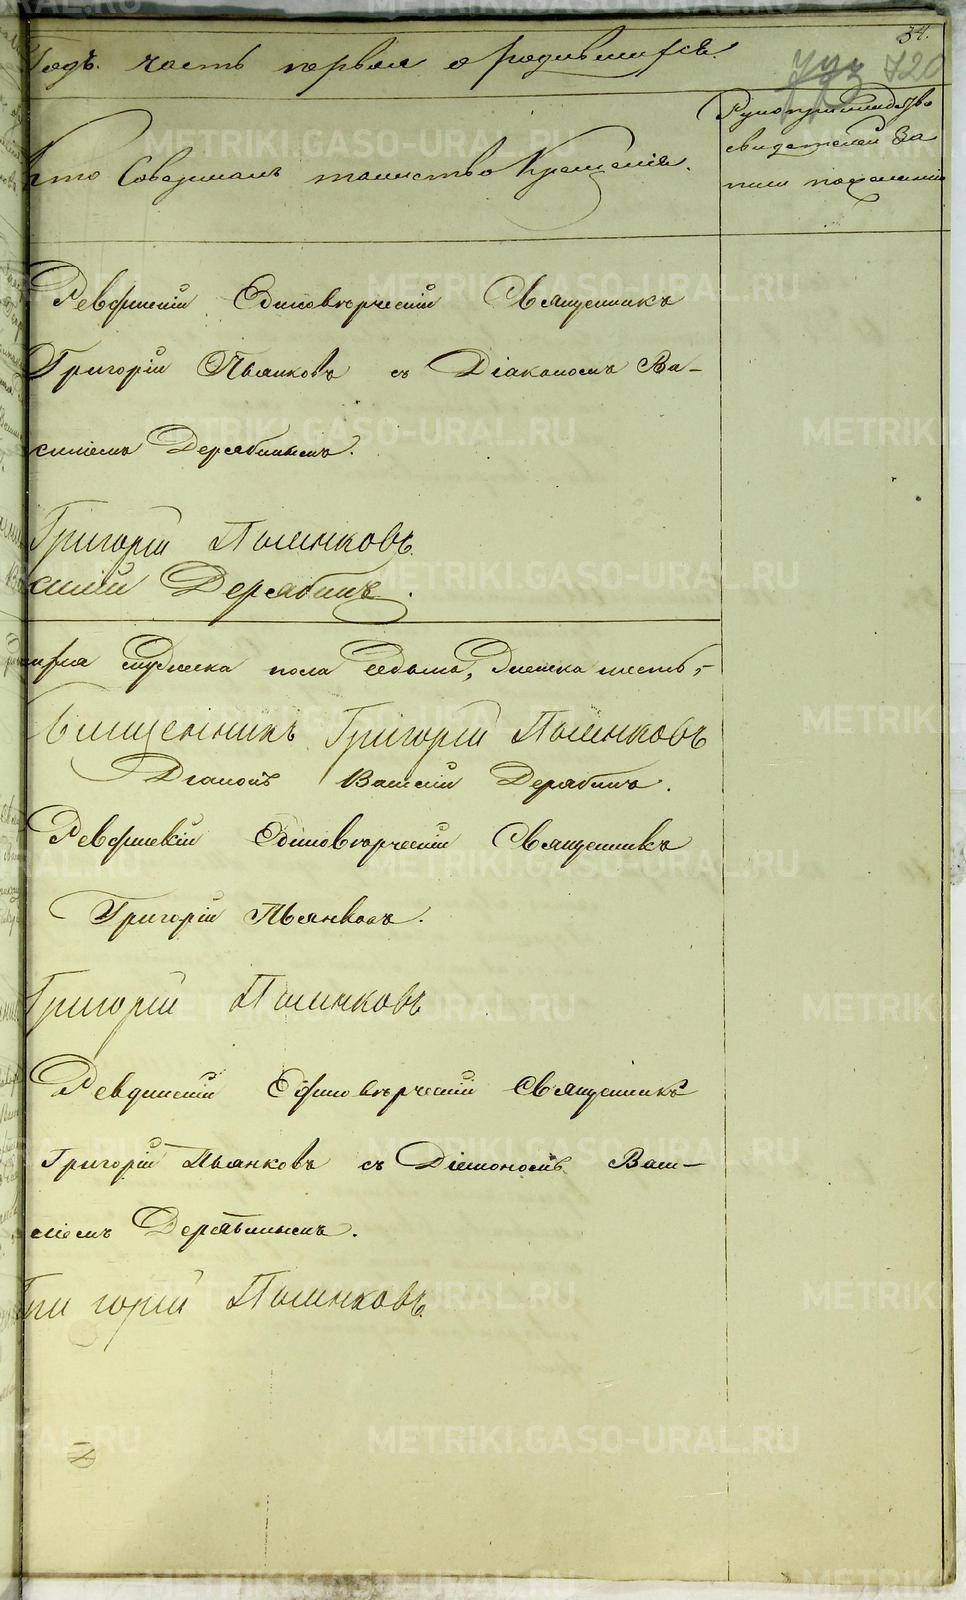 34.
Годъ. часть первая о родившихся.
720
Кто Совершалъ таинство Крещенія.
Рукоприкладство
свидѣтелей За
писи по желанію
Ревдинскій Единовѣрческій Священникъ
Григорій Пьянковъ съ Діакономъ Ва-
силіемъ Дерябинымъ.
Григорій Пьянковъ
силій Дерябинъ.
мужеска пола седьмъ, Женска шесть,-
Священникъ Григорій Пьянковъ
Діаконъ Василій Дерябинъ.
Ревдинскій Единовѣрческій Священникъ
Григорій Пьянковъ.
Григорій Пьянковъ
Ревдинскій Единовѣрческій Священникъ
Григорій Пьянковъ съ Діакономъ Васи-
ліемъ Дерябинымъ.
Григорій Пьянковъ
METRIKI.GASO-URAL.RU